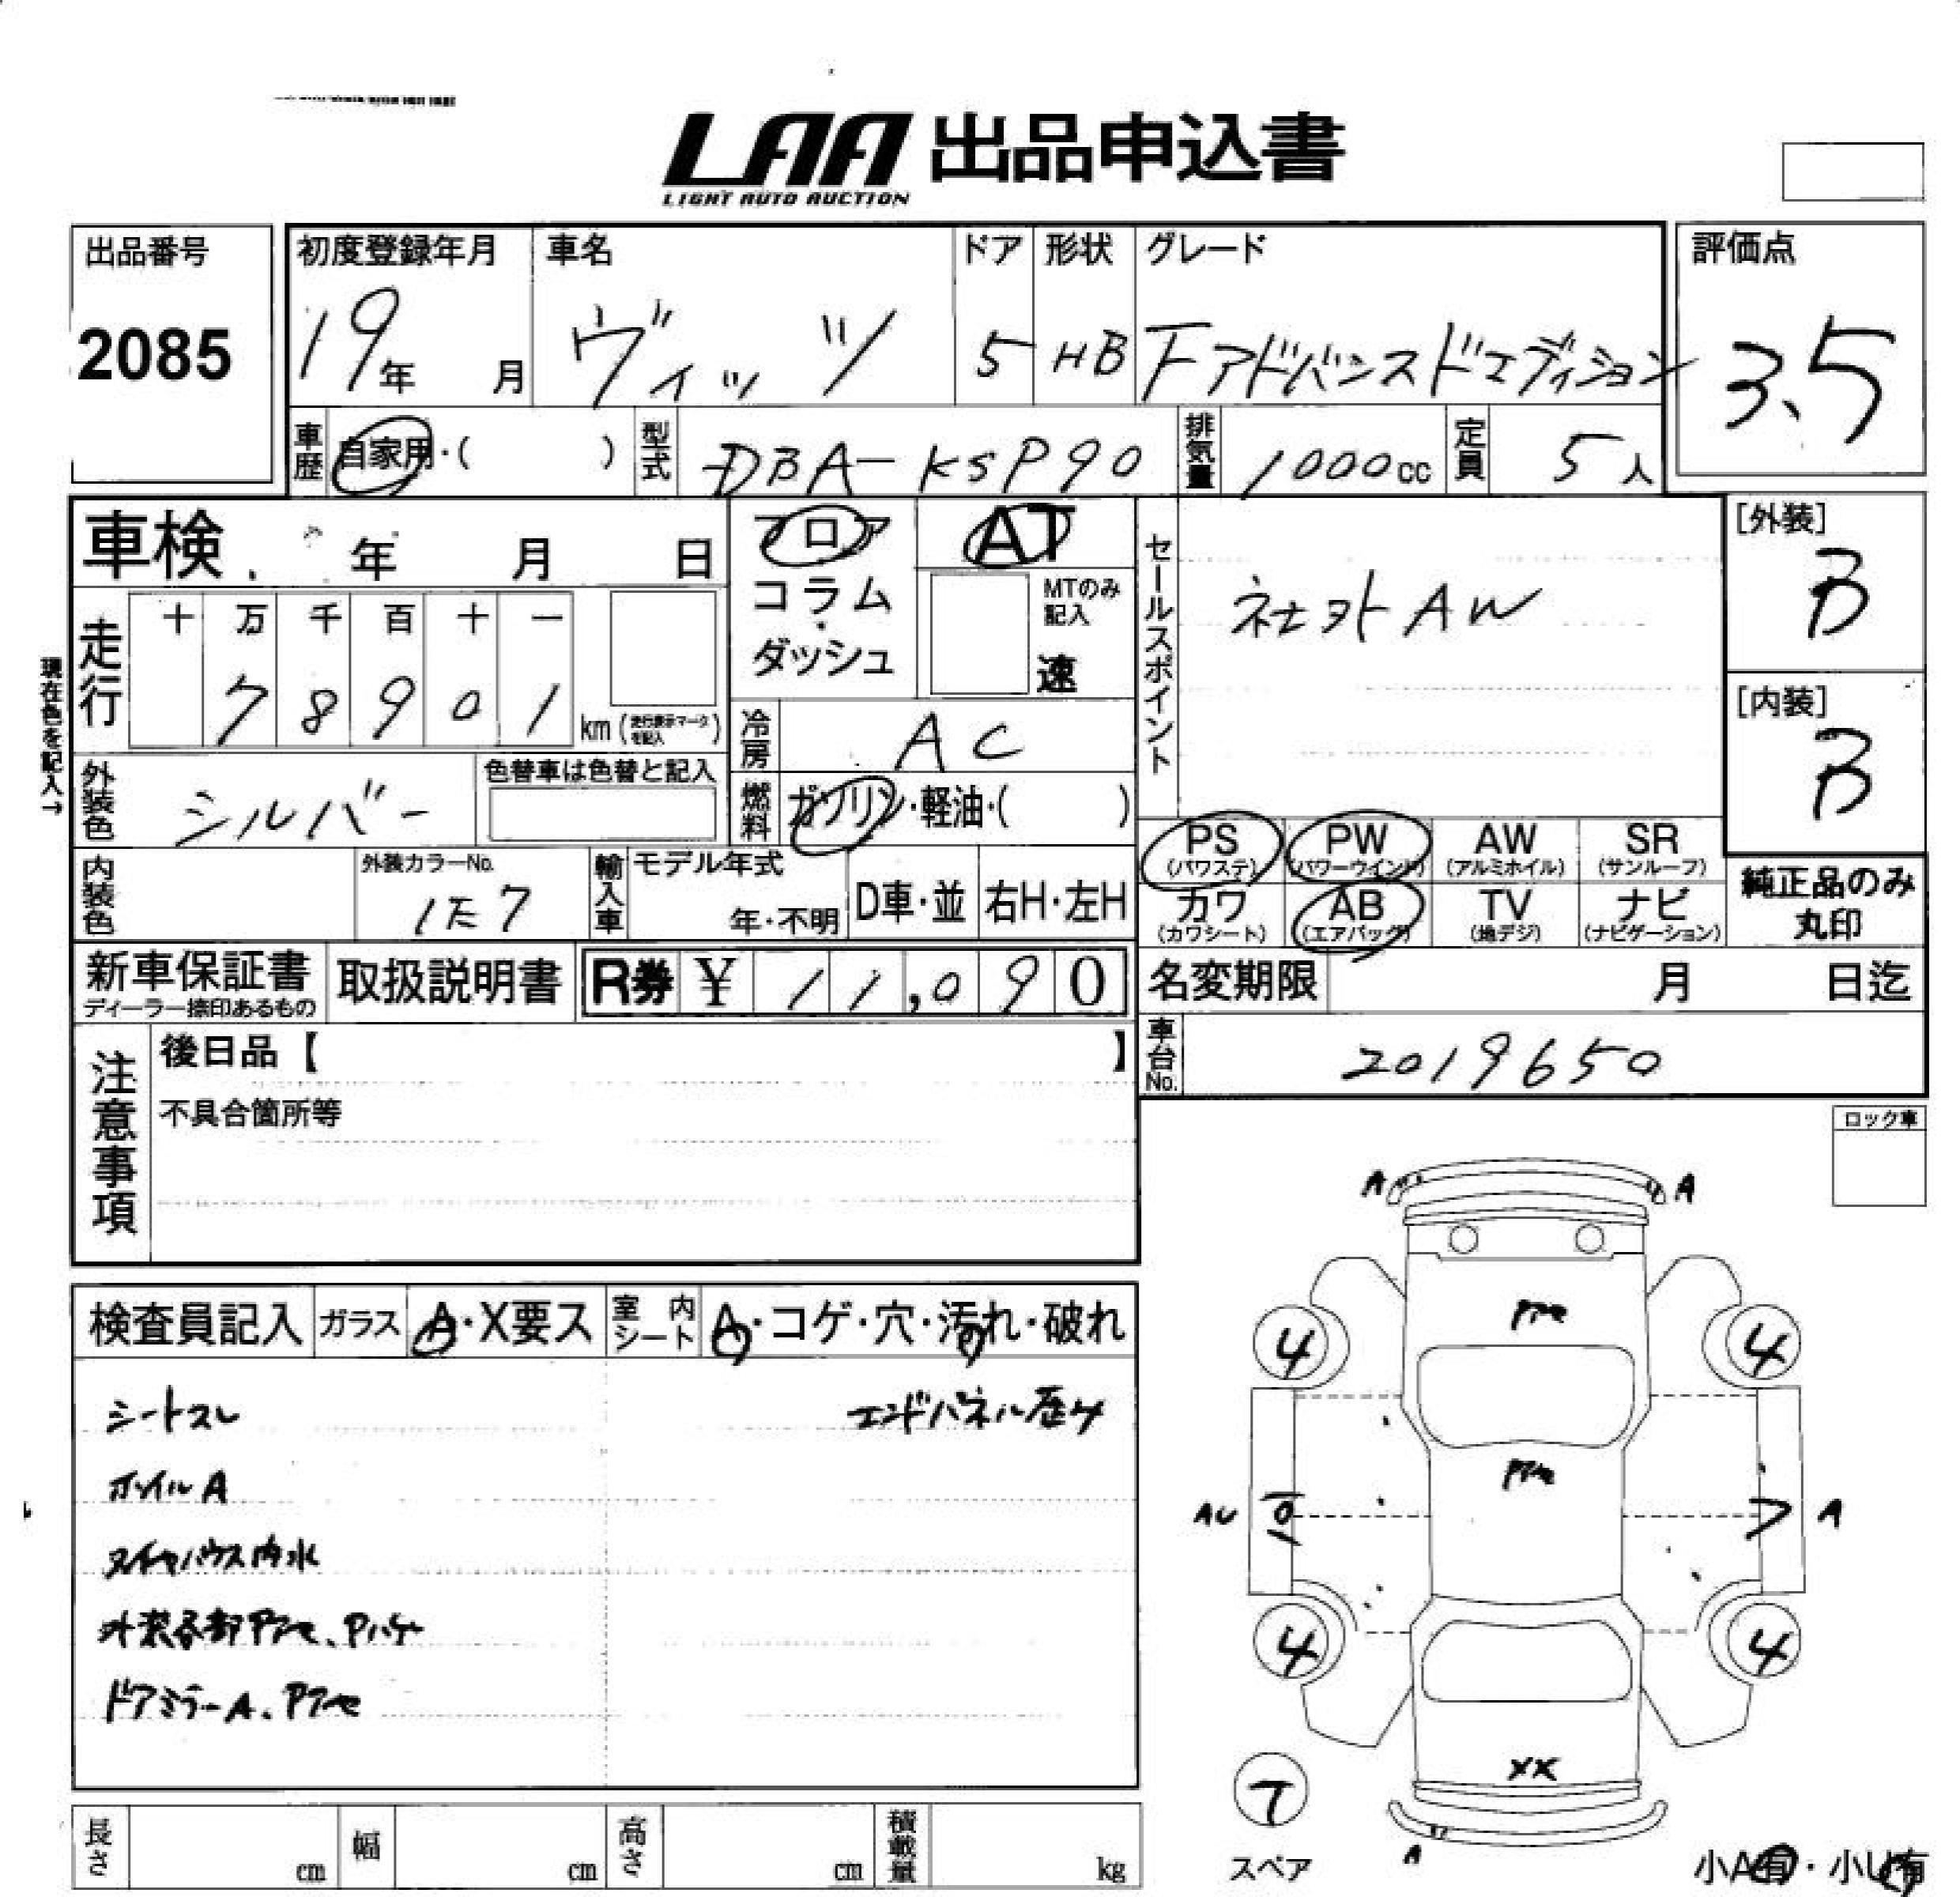 LAA 出品申込書
LIGHT AUTO AUCTION
出品番号
2085
初度登録年月
19年 月
車名
ヴィッツ
ドア
5
形状
HB
グレード
Fアドバンスドエディション
評価点
3.5
車歴 自家用・( )
型式 DBA-KSP90
排気量 1000cc
定員 5人
車検 年 月 日
フロア
コラム
・
ダッシュ
AT
MTのみ記入
速
セールスポイント
社外AW
[外装]
B
[内装]
B
現在色を記入→
走行
十 万 千 百 十 一
7 8 9 0 1 km (走行表示マークを記入)
冷房 AC
外装色 シルバー
色替車は色替と記入
燃料 ガソリン・軽油・( )
PS (パワステ)
PW (パワーウインド)
AW (アルミホイル)
SR (サンルーフ)
カワ (カワシート)
AB (エアバッグ)
TV (地デジ)
ナビ (ナビゲーション)
純正品のみ
丸印
内装色
外装カラーNo.
1E7
輸入車
モデル年式
年・不明
D車・並
右H・左H
新車保証書
ディーラー捺印あるもの
取扱説明書
R券 ¥ 11,090
名変期限 月 日迄
車台No. 2019650
注意事項
後日品【 】
不具合箇所等
ロック車
検査員記入
ガラス A・X要ス
室内シート A・コゲ・穴・汚れ・破れ
シートスレ
エンドパネル歴4
ホイルA
タイヤハウス内水
外装各部Pアセ、Pハゲ
ドアミラーA、Pアセ
A A
Pアセ
4 4
Pアセ
AU A
4 4
XX
T
スペア
A
小A有・小U有
長さ cm
幅 cm
高さ cm
積載量 kg